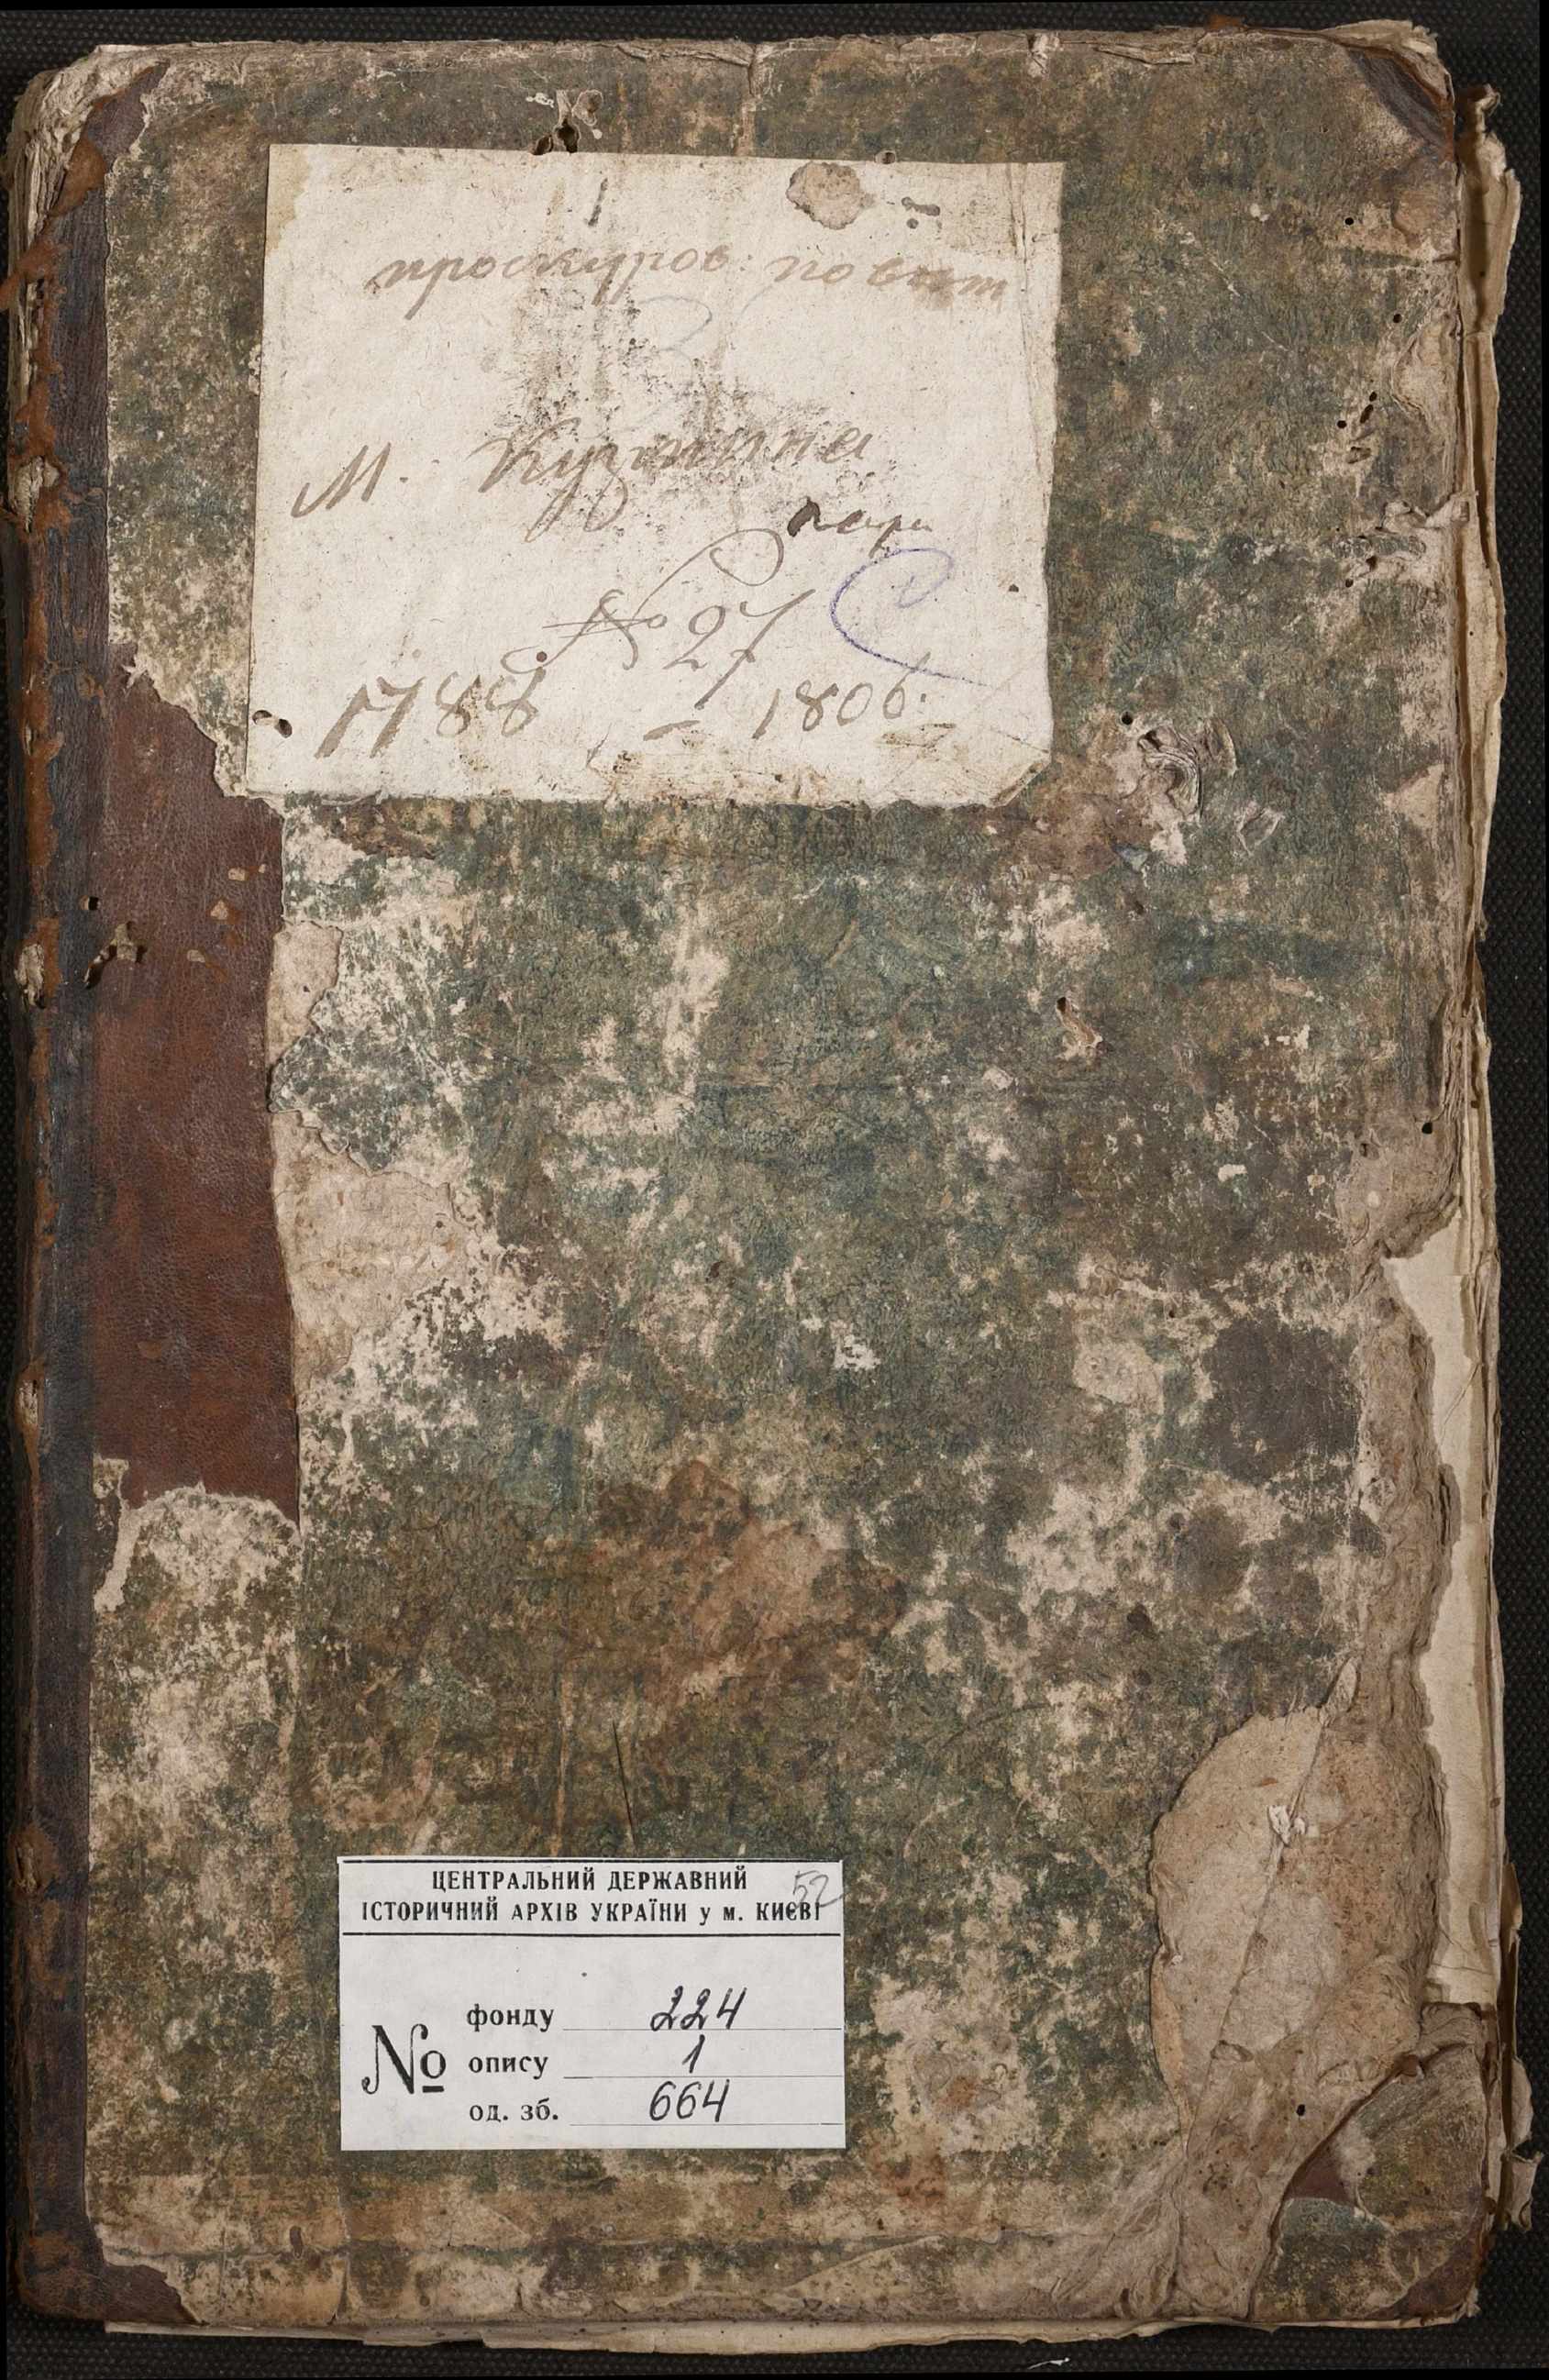 проскуров: повит
М. Кузмина
№ 27
1788 - 1806.
52
ЦЕНТРАЛЬНИЙ ДЕРЖАВНИЙ
ІСТОРИЧНИЙ АРХІВ УКРАЇНИ у м. КИЄВІ
№
фонду 224
опису 1
од. зб. 664